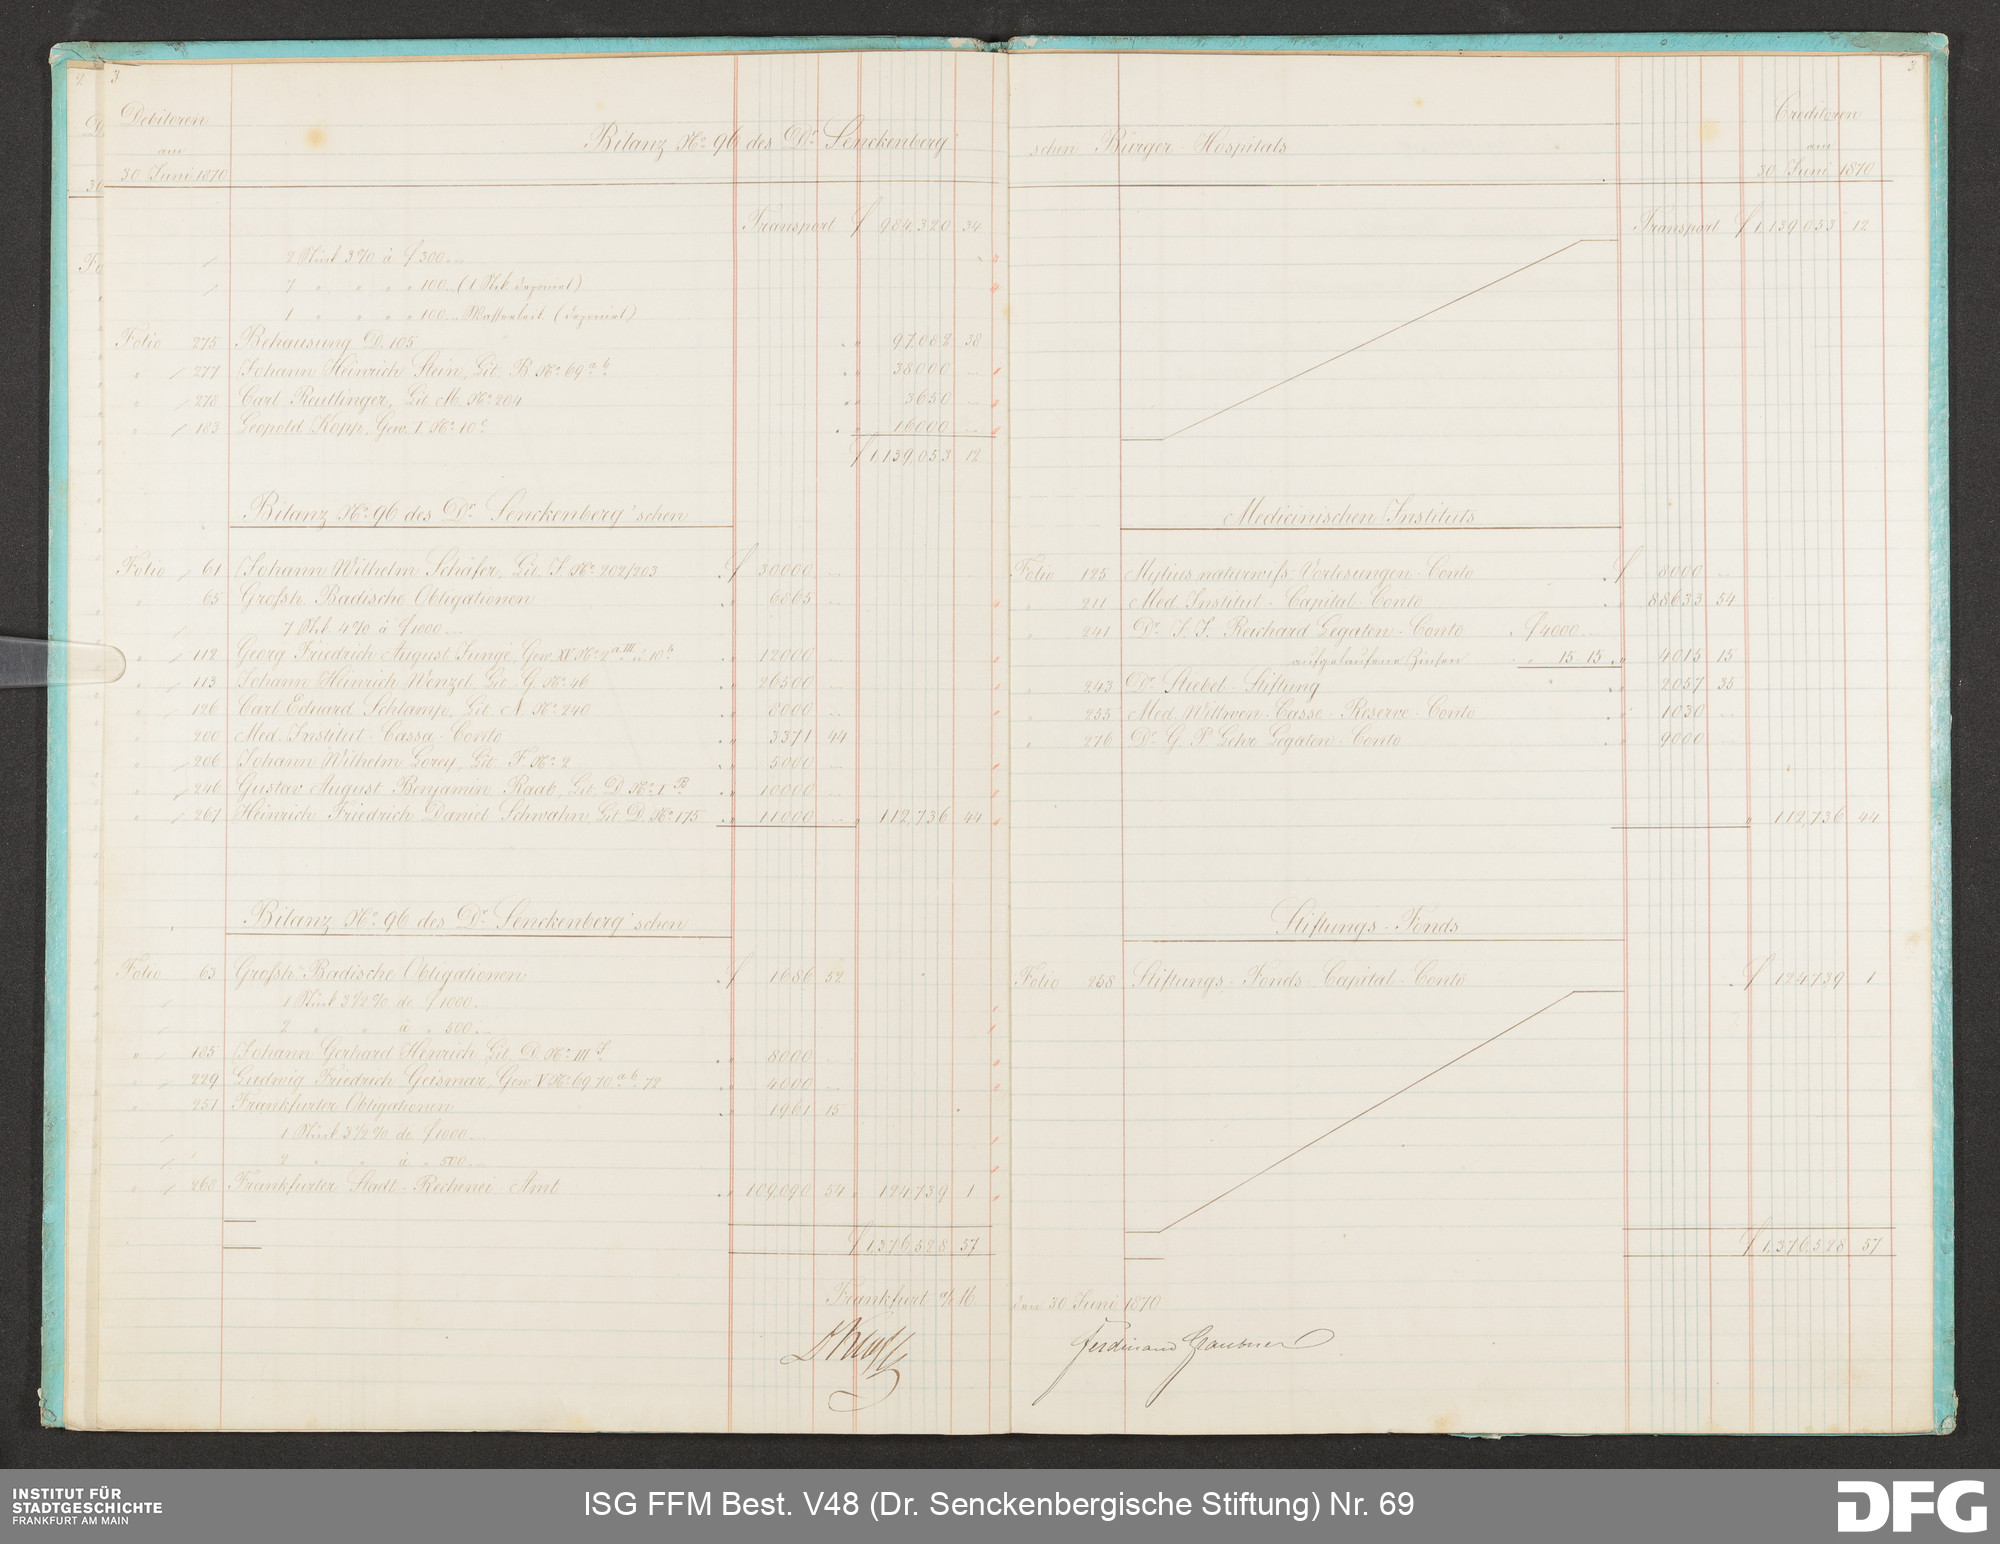 2 3 3
Debitoren
am
30 Juni 1870
Bilanz No. 96 des Dr. Senckenberg'
schen Bürger-Hospitals
Creditoren
am
30 Juni 1870
Transport f 984,320 34
2 Stück 3% à f 300 ...
7 " " " " 100 ... (1 Stck. deponirt)
1 " " " " 100 ... (deponirt)
Folio 275 Behausung D. 105 " 97,082 38
" 277 Johann Heinrich Stein, Lit. B No. 69 a b " 38000 ...
" 278 Carl Reutlinger, Lit. M. No. 204 " 3650 ...
" 183 Leopold Kopp, Gew. I No. 10 c " 16000 ...
f 1,139,053 12
Transport f 1,139,053 12
Bilanz No. 96 des Dr. Senckenberg'schen
Medicinischen Instituts
Folio 61 Johann Wilhelm Schäfer, Lit. J No. 202/203 f 30000 ...
" 65 Grossh. Badische Obligationen " 6865 ...
7 Stck. 4% à f 1000 ...
" 112 Georg Friedrich August Junge, Gew. XV No. 2 a III & 10 b " 12000 ...
" 113 Johann Heinrich Wenzel Lit. G. No. 46 " 26500 ...
" 126 Carl Eduard Schlamp, Lit. N. No. 240 " 8000 ...
" 200 Med. Institut-Cassa-Conto " 3371 44
" 206 Johann Wilhelm Lorey, Lit. F No. 2 " 5000 ...
" 246 Gustav August Benjamin Raab, Lit. D. No. 1 B. " 10000 ...
" 267 Heinrich Friedrich Daniel Schwahn, Lit. D. No. 175 " 11000 ... " 112,736 44
Folio 125 Mylius naturwiss. Vorlesungen-Conto f 8000 ...
" 211 Med. Institut-Capital-Conto " 88633 54
" 241 Dr. J. J. Reichard Legaten-Conto f 4000 ...
aufgelaufene Zinsen " 15 15 " 4015 15
" 243 Dr. Stiebel-Stiftung " 2057 35
" 255 Med. Wittwen-Casse-Reserve-Conto " 1030 ...
" 276 Dr. G. P. Lehr Legaten-Conto " 9000 ...
" 112,736 44
Bilanz No. 96 des Dr. Senckenberg'schen
Stiftungs-Fonds
Folio 63 Grossh. Badische Obligationen f 1686 52
1 Stück 3 1/2 % de f 1000 ...
2 " " à " 500 ...
" 185 Johann Gerhard Henrich Lit. D. No. III J. " 8000
" 229 Ludwig Friedrich Geismar, Gew. V No. 69 70 a b 72 " 4000 ...
" 251 Frankfurter Obligationen " 1961 15
1 Stück 3 1/2 % de f 1000 ...
2 " " à " 500 ...
" 268 Frankfurter Stadt-Rechnei-Amt " 109,090 54 " 124,739 1
f 1,376,528 57
Folio 258 Stiftungs-Fonds-Capital-Conto f 124,739 1
f 1,376,528 57
Frankfurt a/M
den 30 Juni 1870
Ferdinand
INSTITUT FÜR
STADTGESCHICHTE
FRANKFURT AM MAIN
ISG FFM Best. V48 (Dr. Senckenbergische Stiftung) Nr. 69
DFG